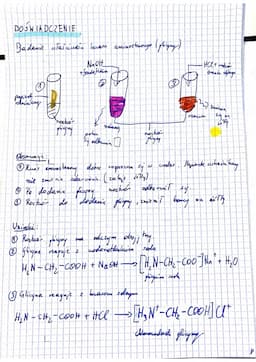 DOŚWIADCZENIE
Badanie właściwości kwasu aminooctowego (glicyny)
NaOH
HCl +
①
②
③
roztwór
glicyny
malinowy
roztwór
glicyny
Obserwacje:
① Kwas aminooctowy dobrze rozpuszcza się w wodzie. Papierek uniwersalny
nie zmienia zabarwienia (żółty)
② Po dodaniu glicyny roztwór odbarwił się
③ Roztwór po dodaniu glicyny zmienił barwę na żółtą
Wnioski:
① Roztwór glicyny ma odczyn obojętny
② Glicyna reaguje z wodorotlenkiem sodu
H₂N-CH₂-COOH + NaOH → [H₂N-CH₂-COO⁻]Na⁺ + H₂O
glicynian sodu
③ Glicyna reaguje z kwasem solnym
H₂N-CH₂-COOH + HCl → [H₃N⁺-CH₂-COOH]Cl⁻
chlorowodorek glicyny